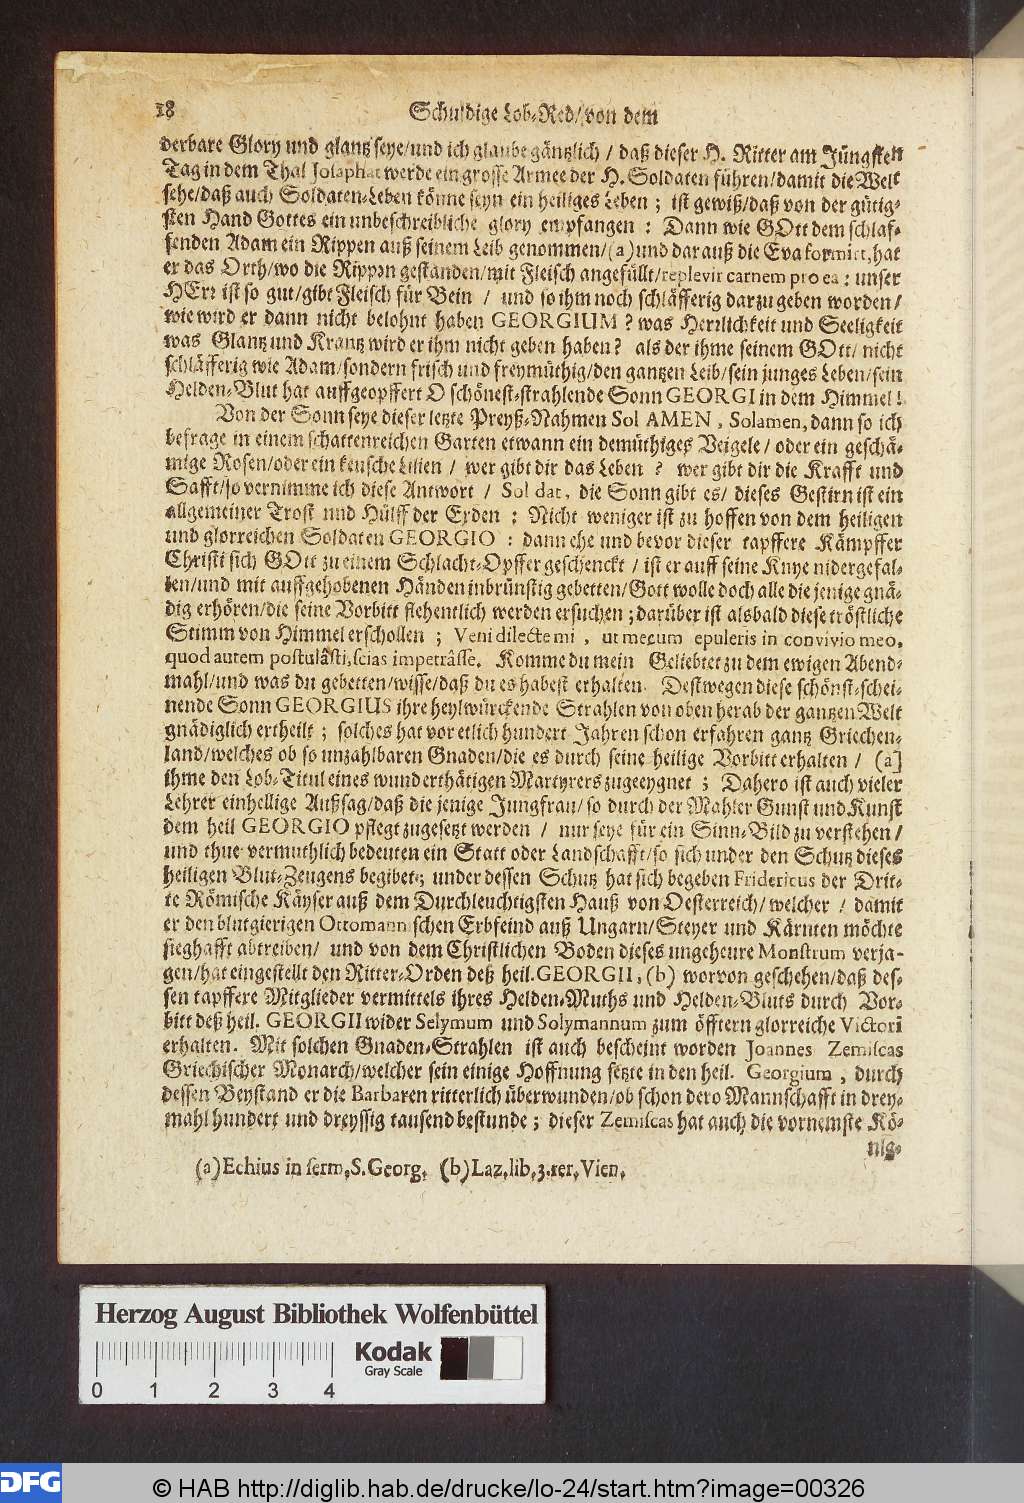 18 Schuldige Lob-Red/ von dem
derbare Glory und glantz seye/und ich glaube gäntzlich / daß dieser H. Ritter am Jüngsten
Tag in dem Thal Josaphat werde ein grosse Armee der H. Soldaten führen/damit die Welt
sehe/daß auch Soldaten-Leben könne seyn ein heiliges Leben ; ist gewiß/daß von der gütig-
sten Hand Gottes ein unbeschreibliche glory empfangen : Dann wie GOtt dem schlaf-
fenden Adam ein Rippen auß seinem Leib genommen/(a)und darauß die Eva formirt,hat
er das Orth/wo die Rippen gestanden/mit Fleisch angefüllt/replevit carnem pro ea : unser
HErr ist so gut/gibt Fleisch für Bein / und so ihm noch schläfferig darzu geben worden/
wie wird er dann nicht belohnt haben GEORGIUM ? was Herrlichkeit und Seeligkeit
was Glantz und Krantz wird er ihm nicht geben haben? als der ihme seinem GOtt/ nicht
schläfferig wie Adam/sondern frisch und freymüthig/den gantzen Leib/sein junges Leben/sein
Helden-Blut hat auffgeopffert O schönest-strahlende Sonn GEORGI in dem Himmel !
Von der Sonn seye dieser letzte Preyß-Nahmen Sol AMEN , Solamen, dann so ich
befrage in einem schattenreichen Garten etwann ein demüthiges Veigele / oder ein geschä-
mige Rosen/oder ein keusche Lilien / wer gibt dir das Leben ? wer gibt dir die Krafft und
Safft/so vernimme ich diese Antwort / Sol dat, die Sonn gibt es/ dieses Gestirn ist ein
allgemeiner Trost und Hülff der Erden : Nicht weniger ist zu hoffen von dem heiligen
und glorreichen Soldaten GEORGIO : dann ehe und bevor dieser tapffere Kämpffer
Christi sich GOtt zu einem Schlacht-Opffer geschenckt / ist er auff seine Knye nidergefal-
len/und mit auffgehobenen Händen inbrünstig gebetten/Gott wolle doch alle die jenige gnä-
dig erhören/die seine Vorbitt flehentlich werden ersuchen ; darüber ist alsbald diese tröstliche
Stimm von Himmel erschollen ; Veni dilecte mi , ut mecum epuleris in convivio meo,
quod autem postulâsti,scias impetrâsse. Komme du mein Geliebter zu dem ewigen Abend-
mahl/und was du gebetten/wisse/daß du es habest erhalten. Destwegen diese schönst-schei-
nende Sonn GEORGIUS ihre heylwürckende Strahlen von oben herab der gantzen Welt
gnädiglich ertheilt ; solches hat vor etlich hundert Jahren schon erfahren gantz Griechen-
land/welches ob so unzahlbaren Gnaden/die es durch seine heilige Vorbitt erhalten / (a]
ihme den Lob-Titul eines wunderthätigen Martyrers zugeeygnet ; Dahero ist auch vieler
Lehrer einhellige Außsag/daß die jenige Jungfrau/ so durch der Mahler Gunst und Kunst
dem heil GEORGIO pflegt zugesetzt werden / nur seye für ein Sinn-Bild zu verstehen /
und thue vermuthlich bedeuten ein Statt oder Landschafft/so sich under den Schutz dieses
heiligen Blut-Zeugens begibet; under dessen Schutz hat sich begeben Fridericus der Drit-
te Römische Käyser auß dem Durchleuchtigsten Hauß von Oesterreich/ welcher / damit
er den blutgierigen Ottomannischen Erbfeind auß Ungarn/Steyer und Kärnten möchte
sieghafft abtreiben/ und von dem Christlichen Boden dieses ungeheure Monstrum verja-
gen/hat eingestellt den Ritter-Orden deß heil.GEORGII, (b) worvon geschehen/daß des-
sen tapffere Mitglieder vermittels ihres Helden-Muths und Helden-Bluts durch Vor-
bitt deß heil. GEORGII wider Selymum und Solymannum zum öfftern glorreiche Victori
erhalten. Mit solchen Gnaden-Strahlen ist auch bescheint worden Joannes Zemiscas
Griechischer Monarch/welcher sein einige Hoffnung setzte in den heil. Georgium , durch
dessen Beystand er die Barbaren ritterlich überwunden/ob schon dero Mannschafft in drey-
mahl hundert und dreyssig tausend bestunde ; dieser Zemiscas hat auch die vornemste Kö-
nig-
(a)Echius in serm,S.Georg, (b)Laz,lib,3.rer,Vien,
Herzog August Bibliothek Wolfenbüttel
Kodak
Gray Scale
0 1 2 3 4
DFG © HAB http://diglib.hab.de/drucke/lo-24/start.htm?image=00326